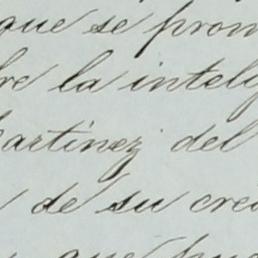 que se prom
re la intelig
Martinez del
de su cre
que